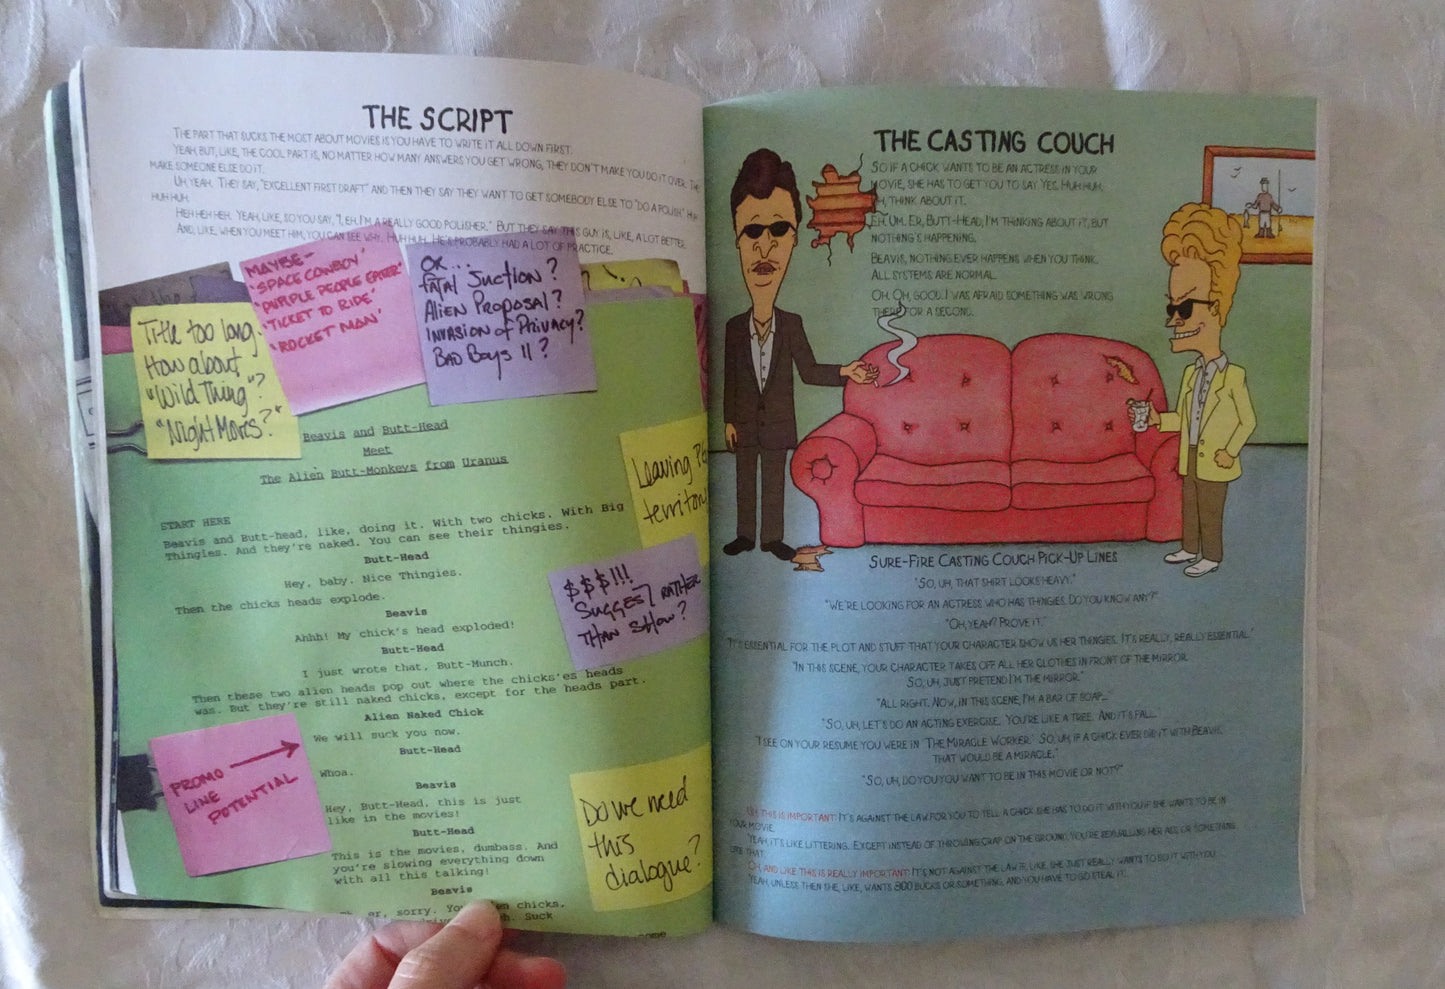 THE SCRIPT
THE PART THAT SUCKS THE MOST ABOUT MOVIES IS YOU HAVE TO WRITE IT ALL DOWN FIRST.
YEAH, BUT, LIKE, THE COOL PART IS, NO MATTER HOW MANY ANSWERS YOU GET WRONG, THEY DON'T MAKE YOU DO IT OVER. THEY
MAKE SOMEONE ELSE DO IT.
UH, YEAH. THEY SAY, "EXCELLENT FIRST DRAFT" AND THEN THEY SAY THEY WANT TO GET SOMEBODY ELSE TO "DO A POLISH." HUH
HUH HUH.
HEH HEH HEH. YEAH, LIKE, SO YOU SAY, "I, EH, I'M A REALLY GOOD POLISHER." BUT THEY SAY THIS GUY IS, LIKE, A LOT BETTER.
AND, LIKE, WHEN YOU MEET HIM, YOU CAN SEE WHY. HUH HUH. HE'S PROBABLY HAD A LOT OF PRACTICE.
Title too long.
How about
"Wild Thing"?
"Night Moves?"
MAYBE -
"SPACE COWBOY"
"PURPLE PEOPLE EATER"
"TICKET TO RIDE"
"ROCKET MAN"
OK...
fatal Suction?
Alien Proposal?
Invasion of Privacy?
BAD Boys II?
Beavis and Butt-Head
Meet
The Alien Butt-Monkeys from Uranus
Leaving
territory
START HERE
Beavis and Butt-head, like, doing it. With two chicks. With Big
Thingies. And they're naked. You can see their thingies.
Butt-Head
Hey, baby. Nice Thingies.
Then the chicks heads explode.
Beavis
Ahhh! My chick's head exploded!
Butt-Head
I just wrote that, Butt-Munch.
$$$!!!
SUGGEST RATHER
THAN SHOW?
Then these two alien heads pop out where the chicks'es heads
was. But they're still naked chicks, except for the heads part.
Alien Naked Chick
We will suck you now.
Butt-Head
Whoa.
Beavis
Hey, Butt-Head, this is just
like in the movies!
Butt-Head
This is the movies, dumbass. And
you're slowing everything down
with all this talking!
Beavis
er, sorry. chicks,
Suck
come
PROMO
LINE
POTENTIAL
Do we need
this
dialogue?
THE CASTING COUCH
SO IF A CHICK WANTS TO BE AN ACTRESS IN YOUR
MOVIE, SHE HAS TO GET YOU TO SAY YES. HUH HUH.
UH, THINK ABOUT IT.
EH. UM. ER, BUTT-HEAD, I'M THINKING ABOUT IT, BUT
NOTHING'S HAPPENING.
BEAVIS, NOTHING EVER HAPPENS WHEN YOU THINK.
ALL SYSTEMS ARE NORMAL.
OH. OH, GOOD. I WAS AFRAID SOMETHING WAS WRONG
THERE FOR A SECOND.
SURE-FIRE CASTING COUCH PICK-UP LINES
"SO, UH, THAT SHIRT LOOKS HEAVY."
"WE'RE LOOKING FOR AN ACTRESS WHO HAS THINGIES. DO YOU KNOW ANY?"
"OH, YEAH? PROVE IT."
"IT'S ESSENTIAL FOR THE PLOT AND STUFF THAT YOUR CHARACTER SHOW US HER THINGIES. IT'S REALLY, REALLY ESSENTIAL."
"IN THIS SCENE, YOUR CHARACTER TAKES OFF ALL HER CLOTHES IN FRONT OF THE MIRROR.
SO, UH, JUST PRETEND I'M THE MIRROR."
"ALL RIGHT. NOW, IN THIS SCENE, I'M A BAR OF SOAP...."
"SO, UH, LET'S DO AN ACTING EXERCISE. YOU'RE LIKE A TREE. AND IT'S FALL."
"I SEE ON YOUR RESUME YOU WERE IN 'THE MIRACLE WORKER.' SO, UH, IF A CHICK EVER DID IT WITH BEAVIS,
THAT WOULD BE A MIRACLE."
"SO, UH, DO YOU YOU WANT TO BE IN THIS MOVIE OR NOT?"
UH, THIS IS IMPORTANT: IT'S AGAINST THE LAW FOR YOU TO TELL A CHICK SHE HAS TO DO IT WITH YOU IF SHE WANTS TO BE IN
YOUR MOVIE.
YEAH, IT'S LIKE LITTERING. EXCEPT INSTEAD OF THROWING CRAP ON THE GROUND, YOU'RE SEXUALLING HER ASS OR SOMETHING
LIKE THAT.
OH, AND LIKE THIS IS REALLY IMPORTANT: IT'S NOT AGAINST THE LAW IF, LIKE, SHE JUST REALLY WANTS TO DO IT WITH YOU.
YEAH, UNLESS THEN SHE, LIKE, WANTS 800 BUCKS OR SOMETHING, AND YOU HAVE TO GO STEAL IT.